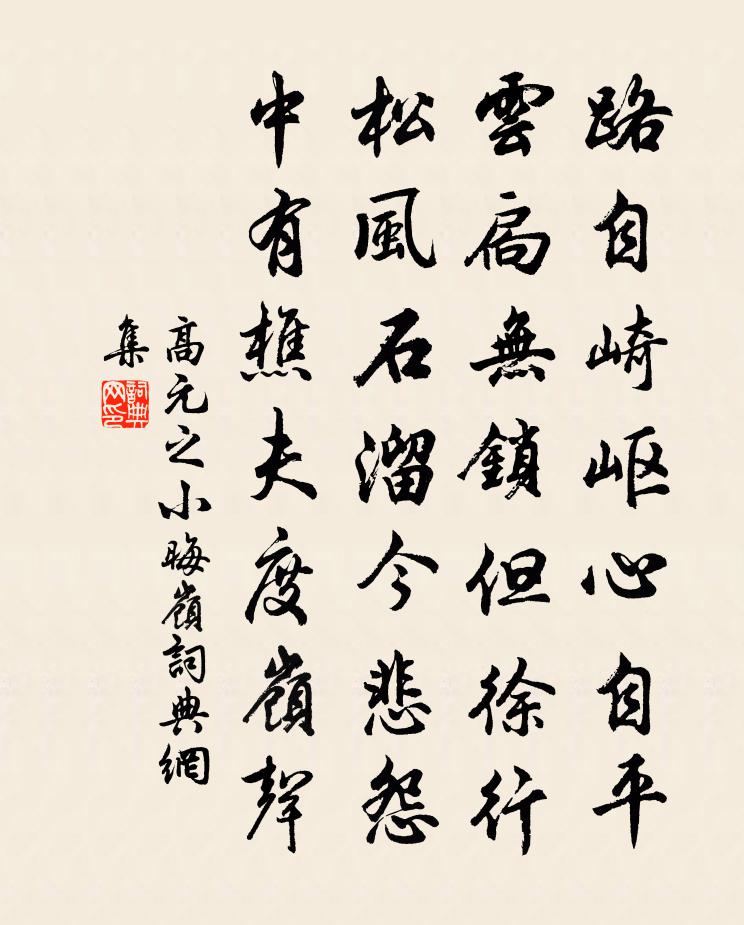 路自崎岖心自平
雲扃無鎖但徐行
松風石溜今悲怨
中有樵夫度嶺聲
高元之小晦嶺詞典網
集
詞典網印